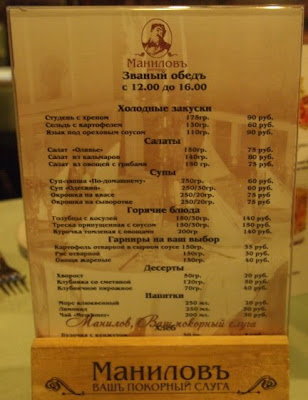 МАНИЛОВЪ
Званый обедъ
с 12.00 до 16.00
Холодные закуски
Студень с хреном 175гр. 90 руб.
Сельдь с картофелем 130гр. 60 руб.
Язык под ореховым соусом 110гр. 90 руб.
Салаты
Салат «Оливье» 150гр. 75 руб.
Салат из кальмаров 140гр. 80 руб.
Салат из овощей с грибами 150 гр. 75 руб.
Супы
Суп-лапша «По-домашнему» 250гр. 60 руб.
Суп 250/30гр. 60 руб.
Окрошка на квасе 250/20гр. 75 руб.
Окрошка на сыворотке 250/20гр. 75 руб.
Горячие блюда
Голубцы с 180/50гр. 140 руб.
Треска припущенная с соусом 150/50гр. 150 руб.
Курочка томленая с овощами 200гр. 140 руб.
Гарниры на ваш выбор
Картофель отварной в сырном соусе 150гр. 55 руб.
Рис отварной 150гр. 30 руб.
Овощи жареные 150гр. 40 руб.
Десерты
Хворост 80гр. 20 руб.
Клубника со сметаной 120гр. 80 руб.
Клубничное пирожное 70гр. 40 руб.
Напитки
Морс клюквенный 250 мл. 20 руб.
Лимонад 250 мл. 50 руб.
Чай 200 мл. 20 руб.
Хлеб
Манилов, Ваш покорный слуга
МАНИЛОВЪ
ВАШЪ ПОКОРНЫЙ СЛУГА